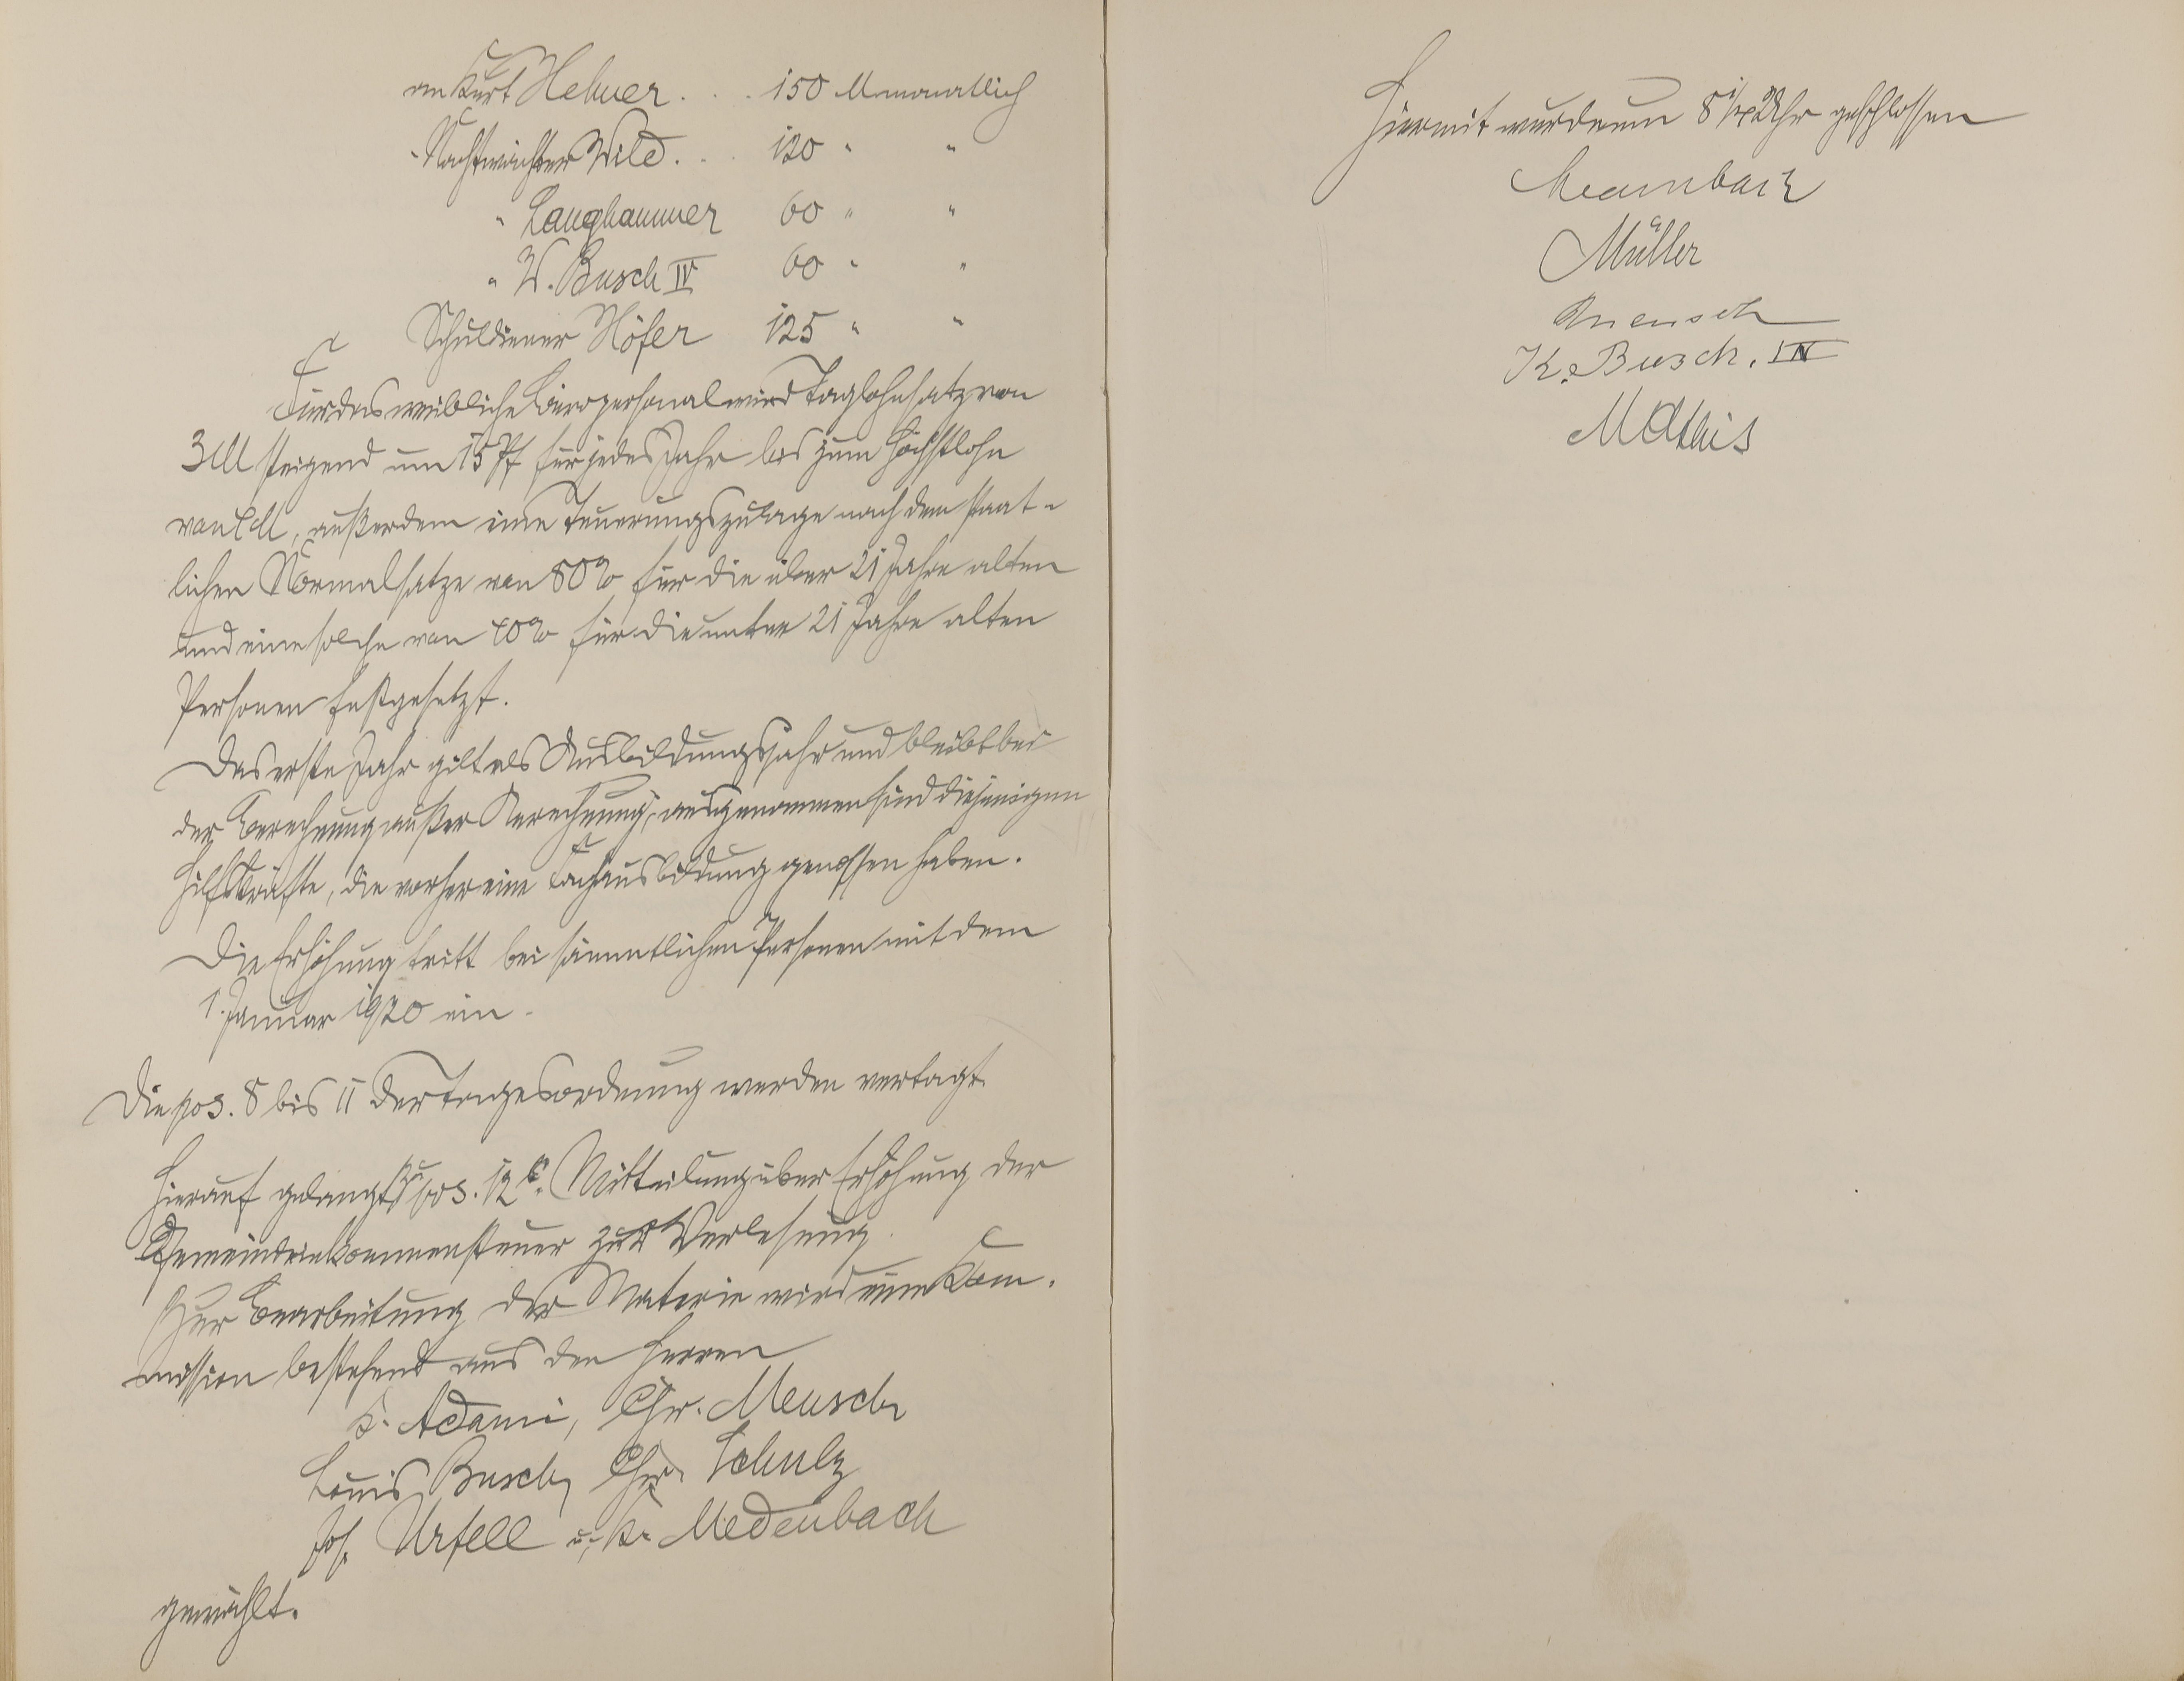 an Kurt Hehner . . . 150 M monatlich
- Nachtwächter Wild . . . 120 " "
" Langhammer 60 " "
" W. Busch IV 60 " "
Schuldiener Höfer 125 " "
Für das weibliche Büropersonal wird Taglohnsatz von
3 M steigend um 15 Pf für jedes Jahr bis zum Höchstlohn
von M, außerdem eine Teuerungszulage nach dem staat-
lichen Normalsatze von 80% für die über 21 Jahre alten
und eine solche von 40% für die unter 21 Jahre alten
Personen festgesetzt.
Das erste Jahr gilt als Ausbildungsjahr und bleibt bei
der Berechnung außer Berechnung, ausgenommen sind diejenigen
Hilfskräfte, die vorher eine Fachausbildung genossen haben.
Die Erhöhung tritt bei sämmtlichen Personen mit dem
1. Januar 1920 ein.
Die pos. 8 bis 11 der Tagesordnung werden vertagt.
Hierauf gelangt zu pos. 12 Mitteilung über Erhöhung der
Gemeindeeinkommensteuer zur Verlesung.
Zur Bearbeitung der Materie wird eine Kom-
mission bestehend aus den Herren
K. Adami, Chr. Meusch
Louis Busch, Chr. Schulz
Jos. Urfell u. K. Medenbach
gewählt.
Hiermit wurde um 8 1/4 Uhr geschlossen
Müller
Meusch
K. Busch. IV
Mathis